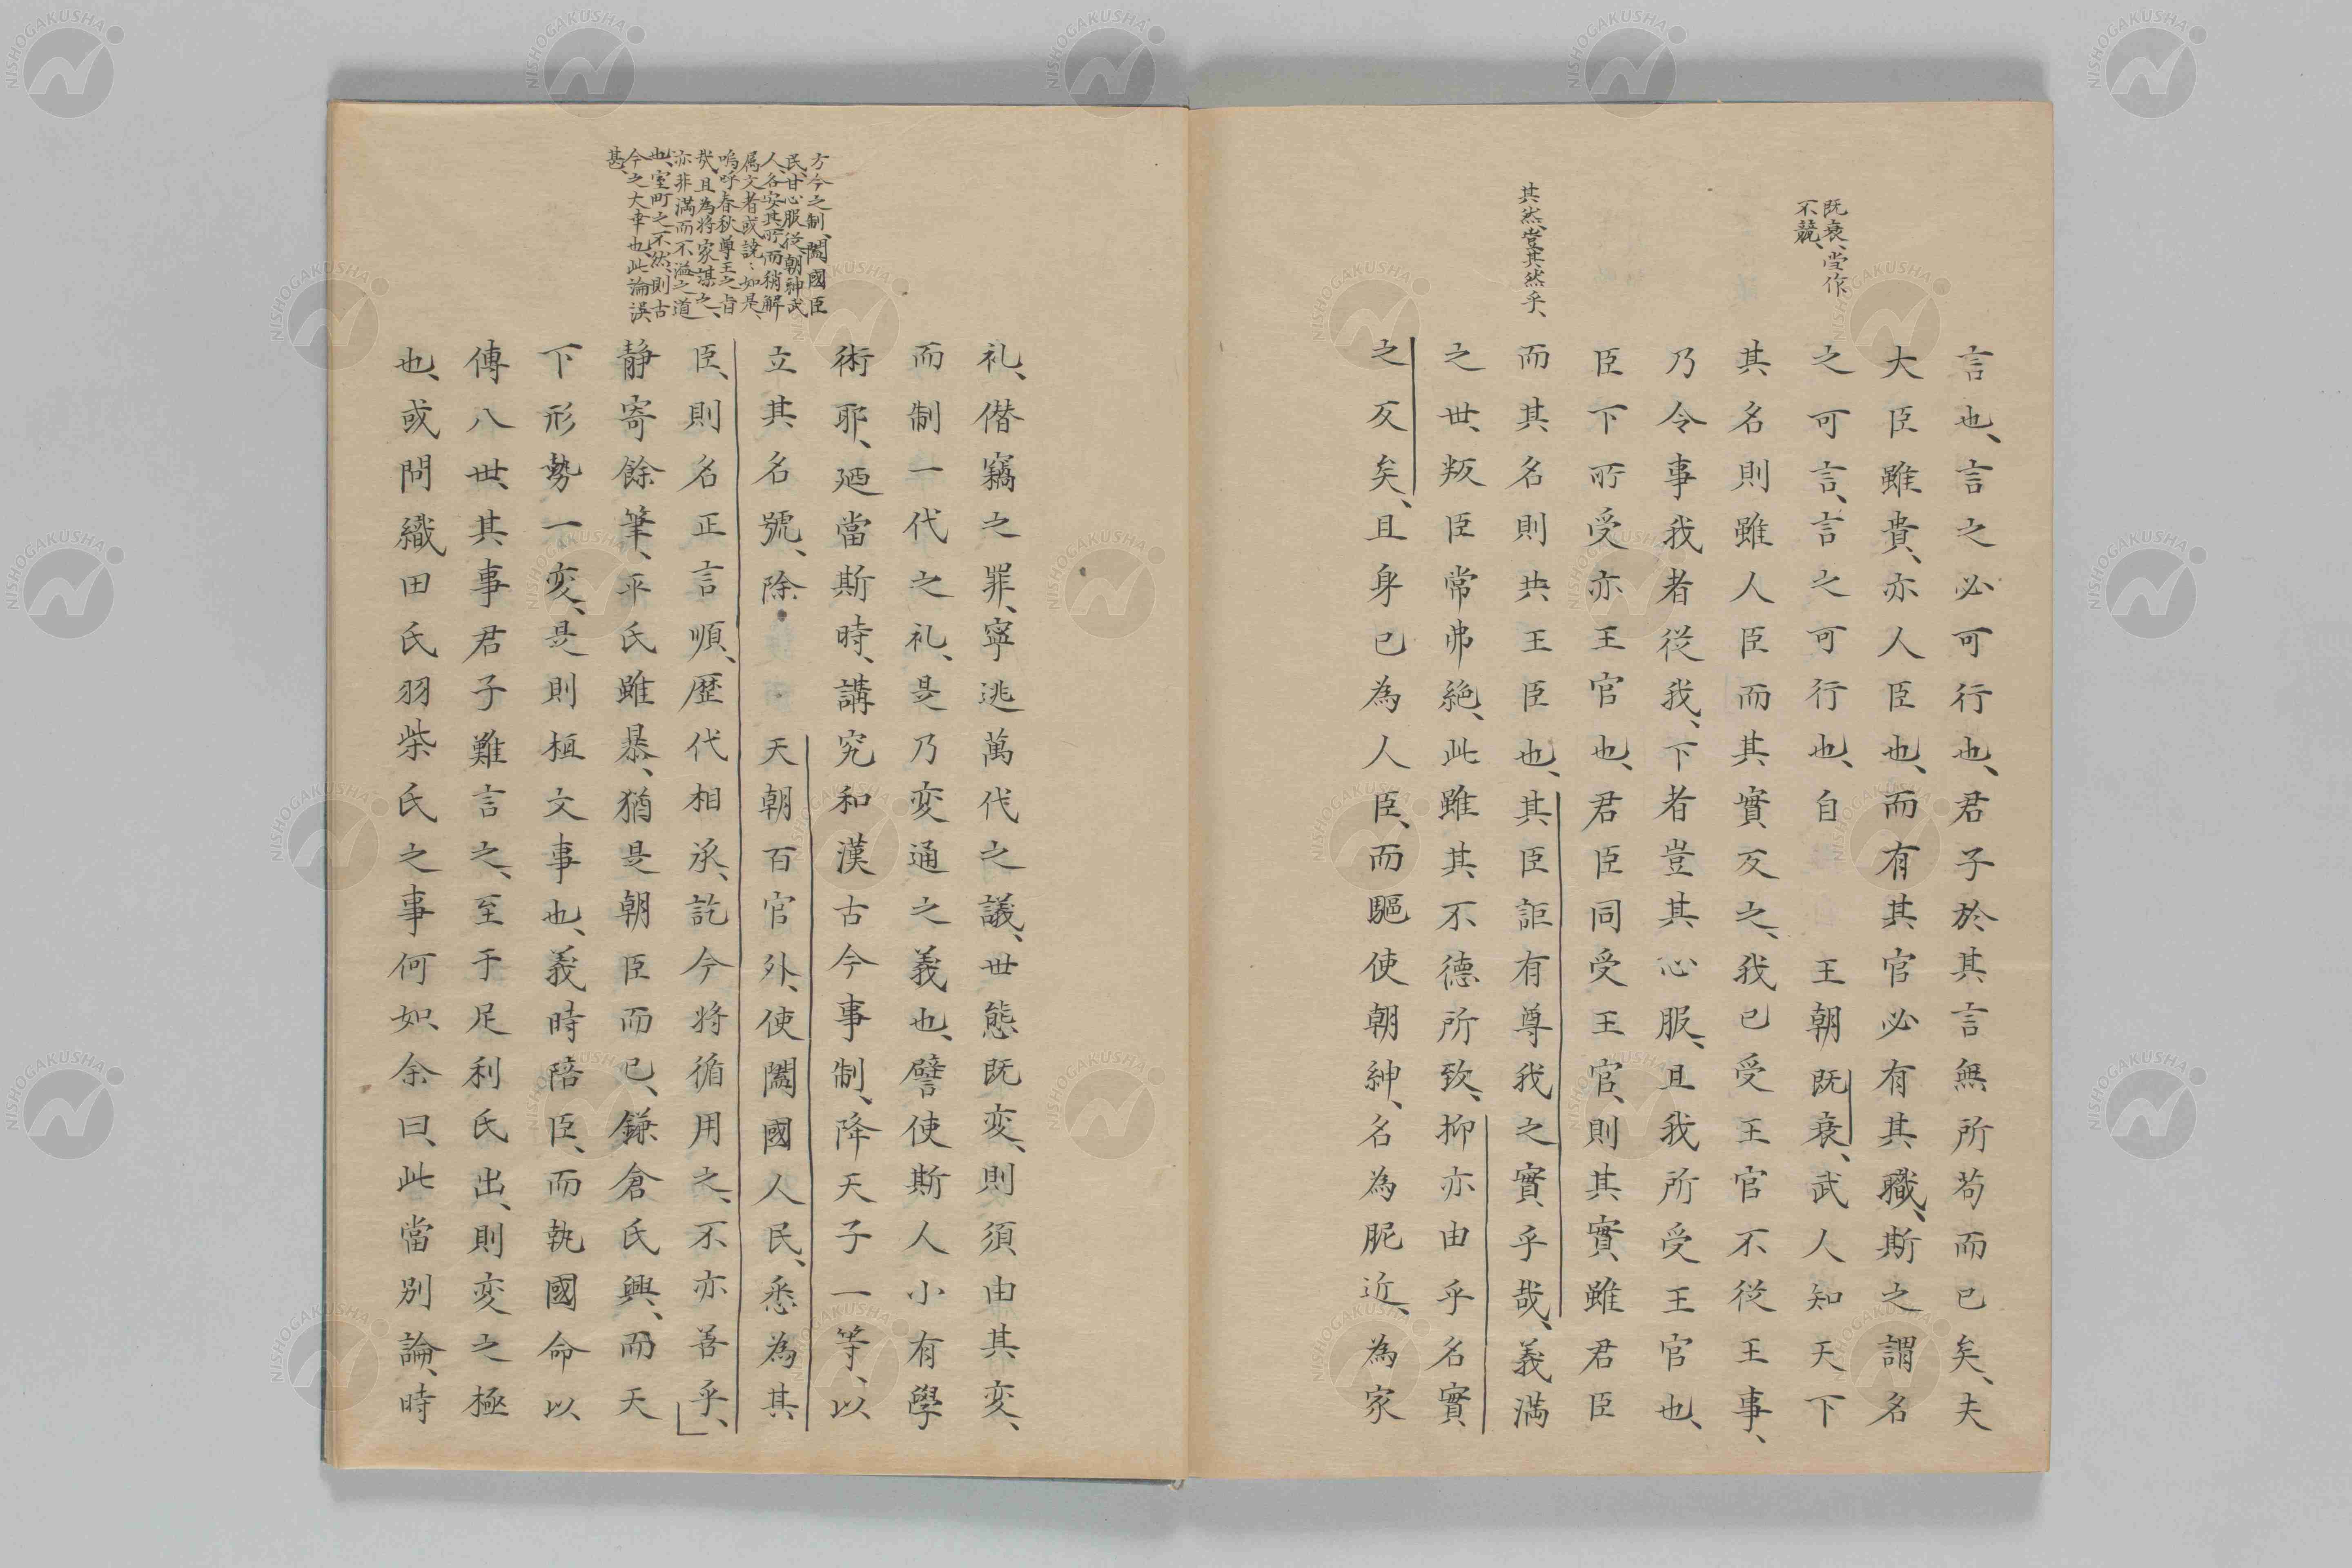 既衰、當作
不競、
其然、豈其然乎、
言也、言之必可行也、君子於其言無所苟而已矣、夫
大臣雖貴、亦人臣也、而有其官必有其職、斯之謂名
之可言、言之可行也、自 王朝既衰、武人知天下
其名則雖人臣而其實反之、我已受王官不從王事、
乃令事我者從我、下者豈其心服、且我所受王官也、
臣下所受亦王官也、君臣同受王官、則其實雖君臣
而其名則共王臣也、其臣詎有尊我之實乎哉、義満
之世、叛臣常弗絶、此雖其不德所致、抑亦由乎名實
之反矣、且身已為人臣、而驅使朝紳、名為昵近、為家
方今之制、闔國臣
民、甘心服從、朝紳武
人、各安其所、而稍解
属文者或説〻如是、
嗚呼春秋尊王之旨
哉、且為将家謀之、
亦非満而不溢之道
也、室町之不然、則古
今之大幸也、此論誤
甚、
礼、僭竊之罪、寧逃萬代之議、世態既変、則須由其変、
而制一代之礼、是乃変通之義也、譬使斯人小有學
術耶、廼當斯時、講究和漢古今事制、降天子一等、以
立其名號、除 天朝百官外、使闔國人民、悉為其
臣、則名正言順、歴代相承、訖今将循用之、不亦善乎、」
静寄餘筆、平氏雖暴、猶是朝臣而已、鎌倉氏興、而天
下形勢一変、是則桓文事也、義時陪臣、而執國命以
傳八世、其事君子難言之、至于足利氏出、則変之極
也、或問織田氏羽柴氏之事何如、余曰、此當別論、時